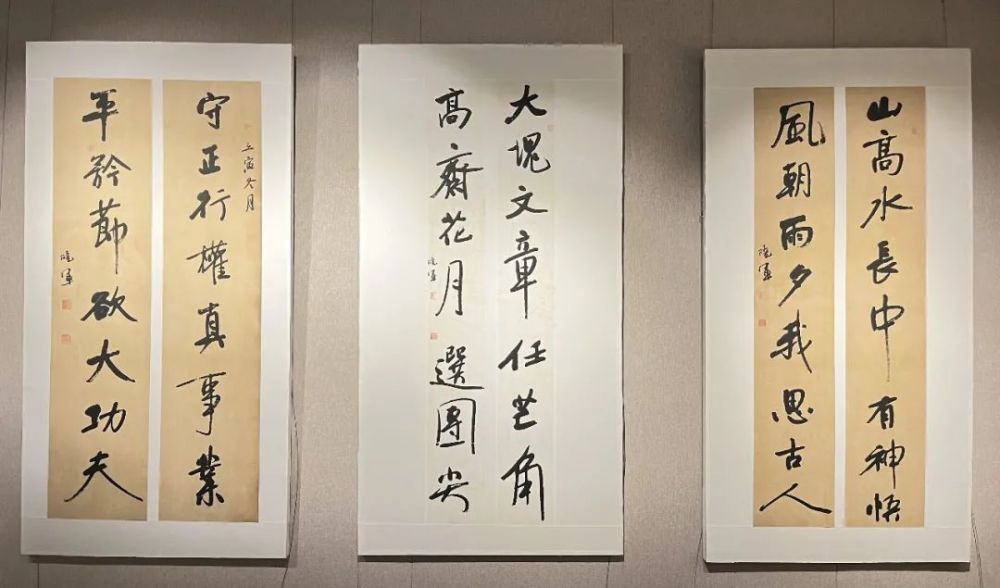 守正行權真事業
壬寅冬月
平矜節欲大功夫
曉軍
大塊文章任芒角
高齋花月選團尖
曉軍
山高水長中有神悟
風朝雨夕我思古人
曉軍